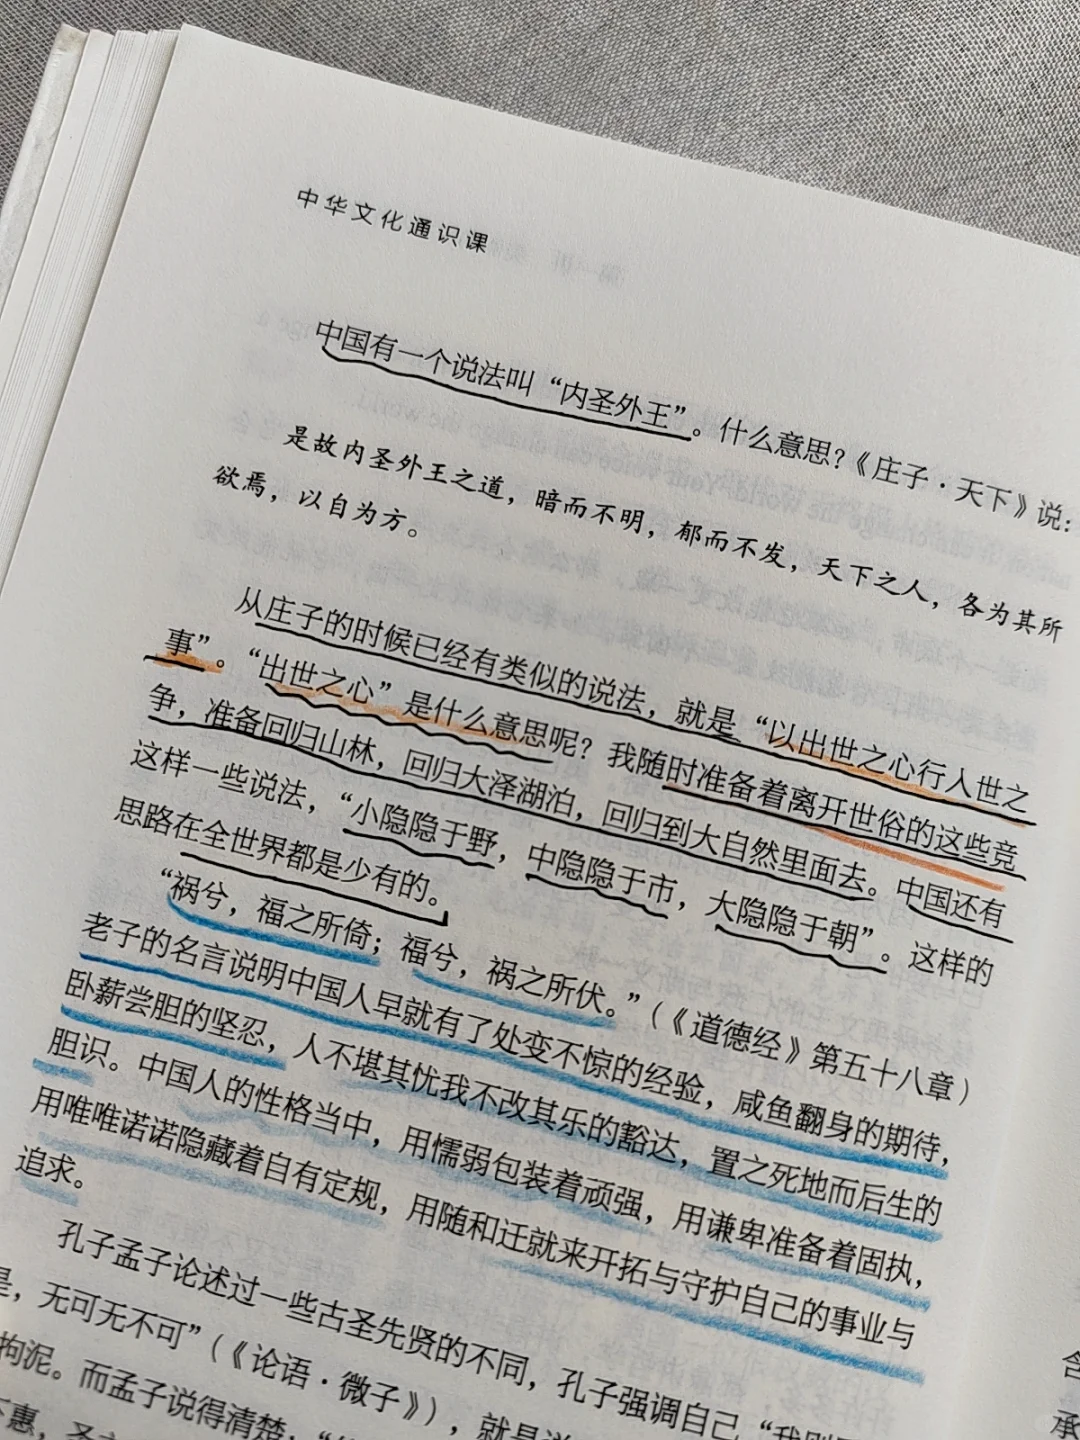 中华文化通识课
中国有一个说法叫“内圣外王”。什么意思?《庄子·天下》说:
是故内圣外王之道,暗而不明,郁而不发,天下之人,各为其所
欲焉,以自为方。
从庄子的时候已经有类似的说法,就是“以出世之心行入世之
事”。“出世之心”是什么意思呢?我随时准备着离开世俗的这些竞
争,准备回归山林,回归大泽湖泊,回归到大自然里面去。中国还有
这样一些说法,“小隐隐于野,中隐隐于市,大隐隐于朝”。这样的
思路在全世界都是少有的。
“祸兮,福之所倚;福兮,祸之所伏。”(《道德经》第五十八章)
老子的名言说明中国人早就有了处变不惊的经验,咸鱼翻身的期待,
卧薪尝胆的坚忍,人不堪其忧我不改其乐的豁达,置之死地而后生的
胆识。中国人的性格当中,用懦弱包装着顽强,用谦卑准备着固执,
用唯唯诺诺隐藏着自有定规,用随和迁就来开拓与守护自己的事业与
追求。
孔子孟子论述过一些古圣先贤的不同,孔子强调自己“我则
是,无可无不可”(《论语·微子》),就是说
拘泥。而孟子说得清楚,
惠,圣
含
承